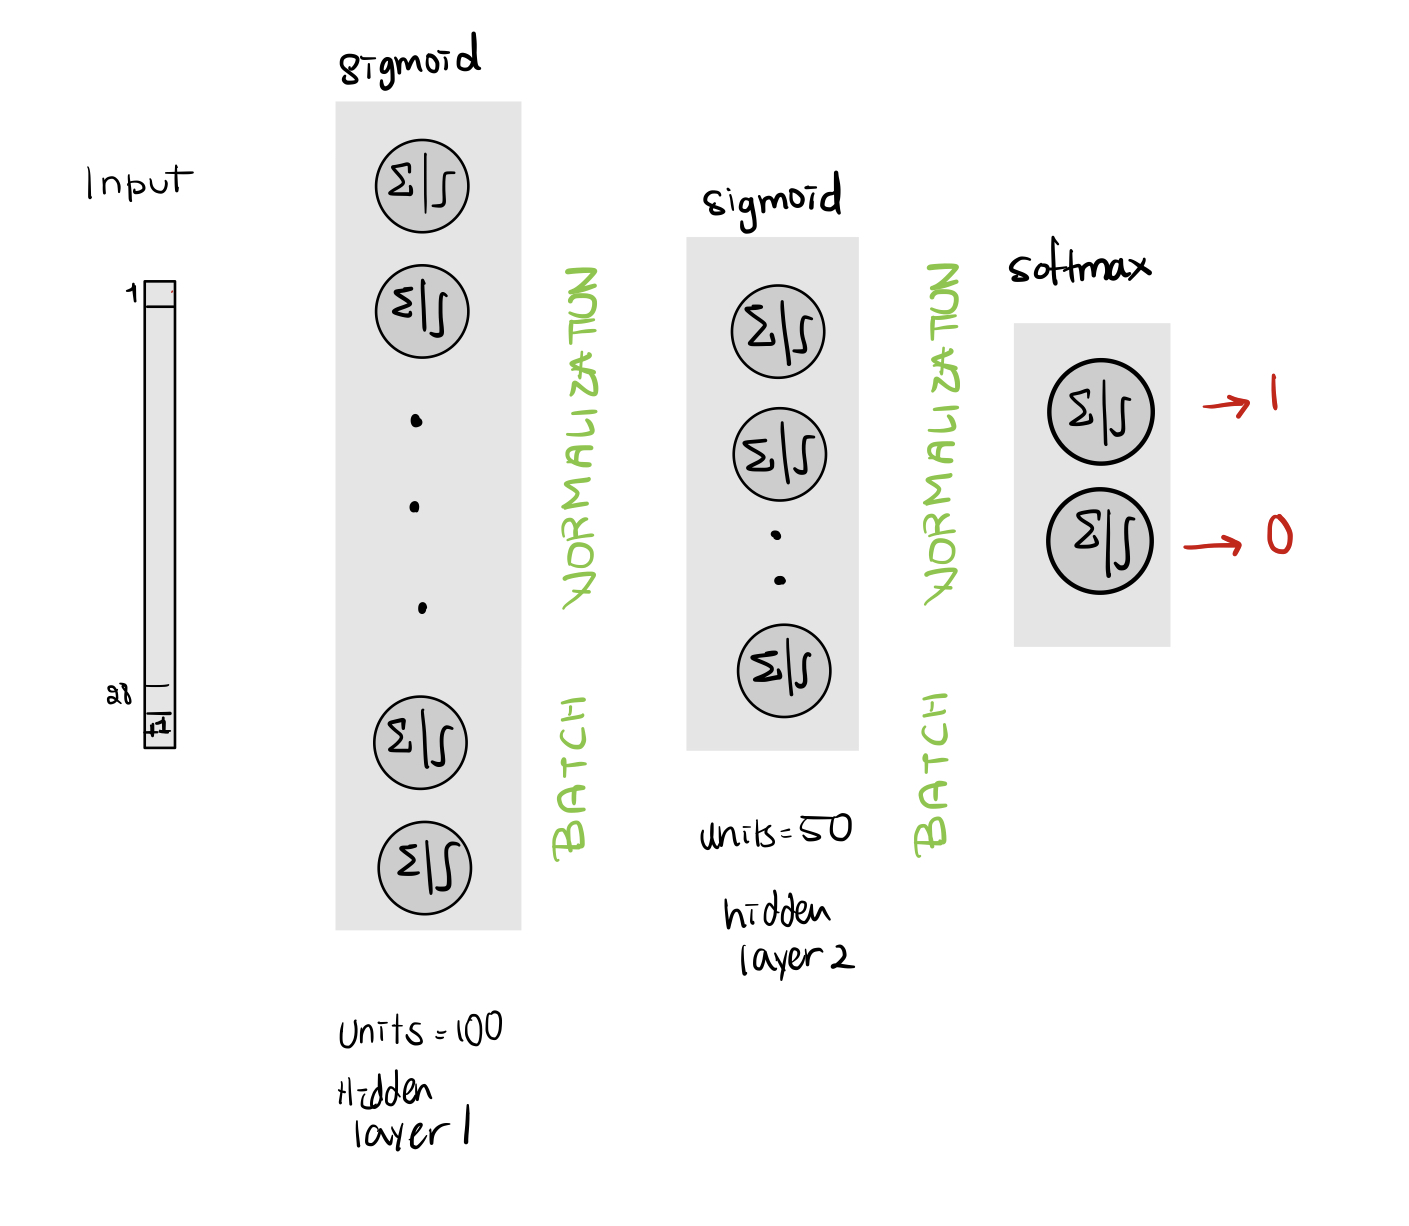 Input
1
28
+1
sigmoid
Σ|∫
Σ|∫
Σ|∫
Σ|∫
units=100
Hidden
layer 1
BATCH NORMALIZATION
sigmoid
Σ|∫
Σ|∫
Σ|∫
units=50
hidden
layer 2
BATCH NORMALIZATION
softmax
Σ|∫
→ 1
Σ|∫
→ 0